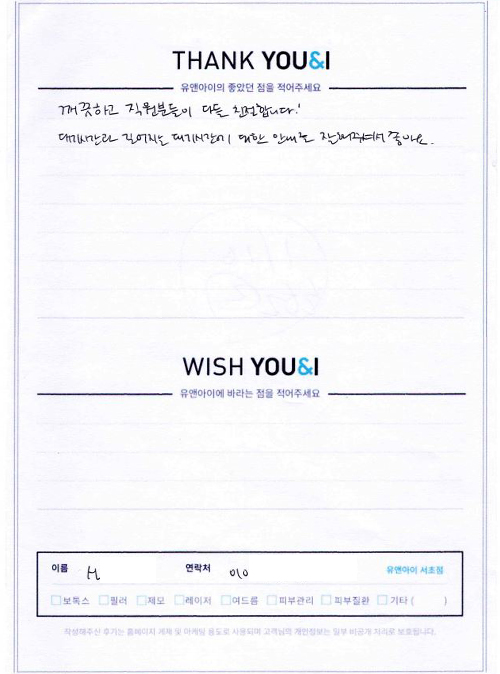 THANK YOU&I
유앤아이의 좋았던 점을 적어주세요
깨끗하고 직원분들이 다들 친절합니다!
대기시간과 길어지는 대기시간에 대한 안내도 잘해주셔서 좋아요.
WISH YOU&I
유앤아이에 바라는 점을 적어주세요
이름 연락처 010 유앤아이 서초점
보톡스 필러 제모 레이저 여드름 피부관리 피부질환 기타 ( )
작성해주신 후기는 홈페이지 게재 및 마케팅 용도로 사용되며 고객님의 개인정보는 일부 비공개 처리로 보호됩니다.